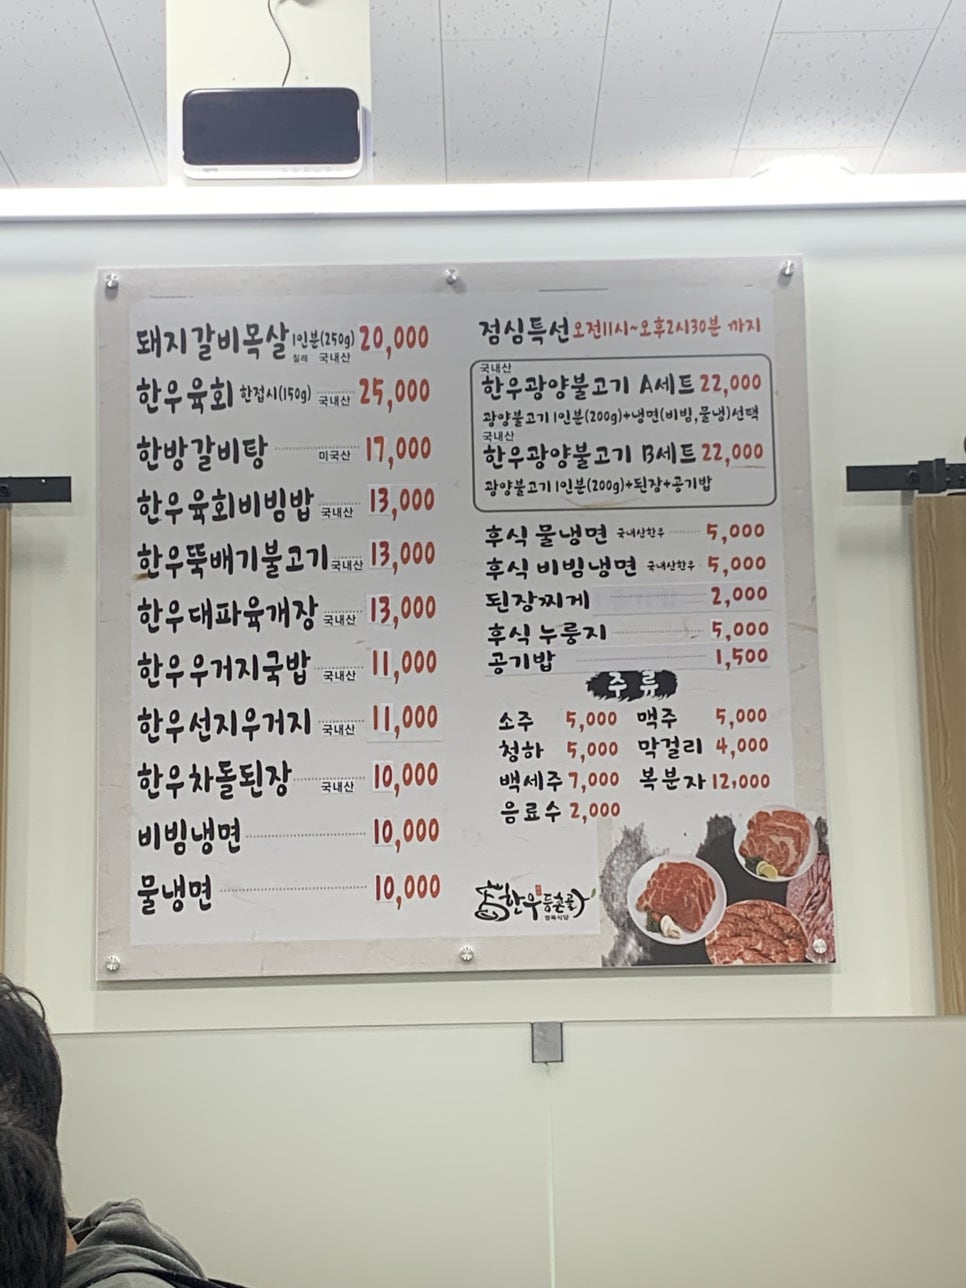 돼지갈비목살 1인분(250g) 20,000
칠레 국내산
한우육회 한접시(150g) 국내산 25,000
한방갈비탕 미국산 17,000
한우육회비빔밥 국내산 13,000
한우뚝배기불고기 국내산 13,000
한우대파육개장 국내산 13,000
한우우거지국밥 국내산 11,000
한우선지우거지 국내산 11,000
한우차돌된장 국내산 10,000
비빔냉면 10,000
물냉면 10,000
점심특선 오전11시~오후2시30분 까지
국내산
한우광양불고기 A세트 22,000
광양불고기1인분(200g)+냉면(비빔,물냉)선택
국내산
한우광양불고기 B세트 22,000
광양불고기1인분(200g)+된장+공기밥
후식 물냉면 국내산한우 5,000
후식 비빔냉면 국내산한우 5,000
된장찌게 2,000
후식 누룽지 5,000
공기밥 1,500
주류
소주 5,000 맥주 5,000
청하 5,000 막걸리 4,000
백세주 7,000 복분자 12,000
음료수 2,000
한우등촌골
정육식당